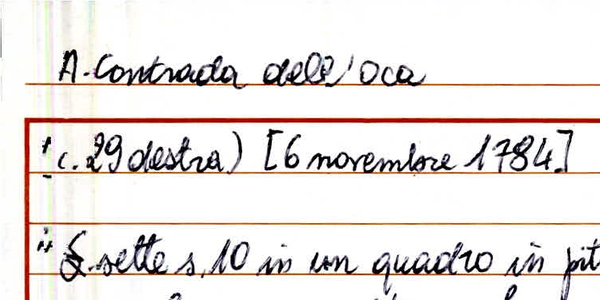 A. Contrada dell'Oca
c. 29 destra) [6 novembre 1784.]
sette s. 10 in un quadro in